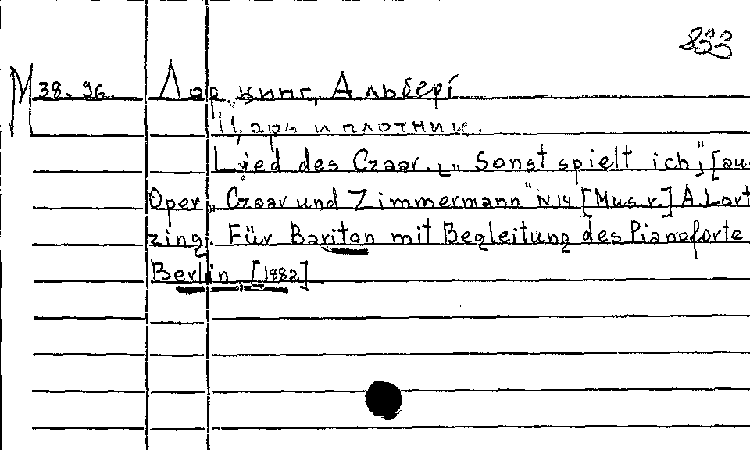 833
М 38.-96. Лорцинг, Альберт
Царь и плотник.
Lied des Czaar. „Sonst spielt ich“, [aus
Oper „Czaar und Zimmermann“ N 14 [Mus. v.] A. Lort
zing. Für Bariton mit Begleitung des Pianoforte
Berlin [1882]